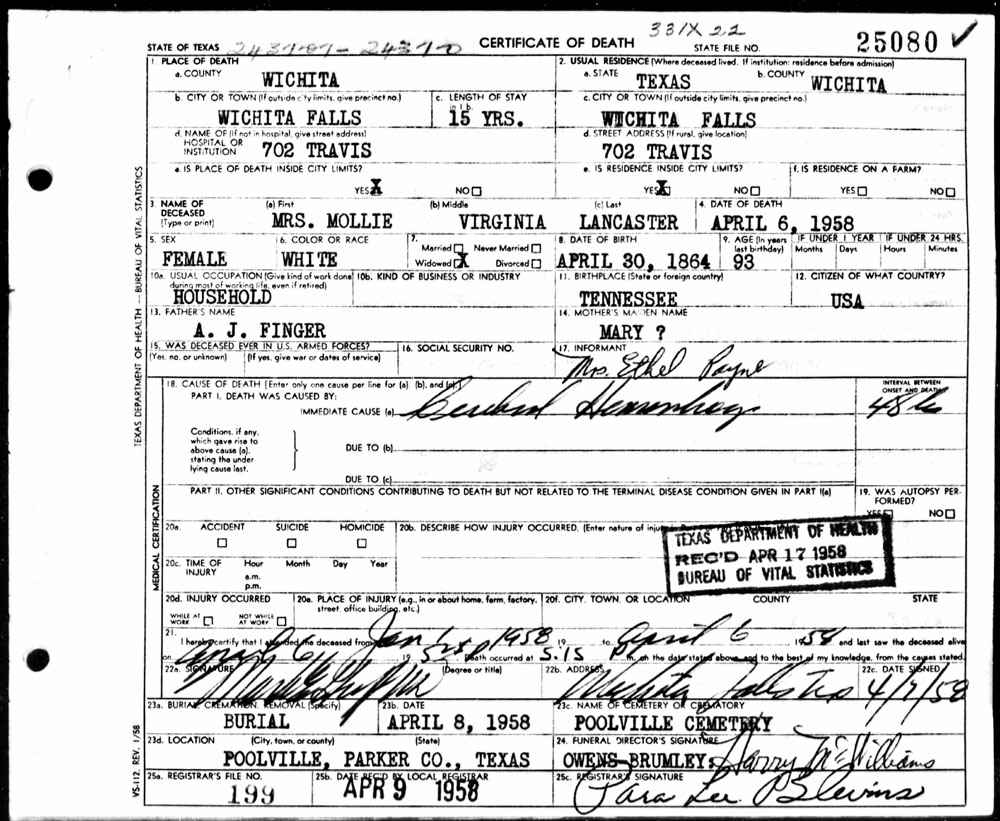 331X 22
STATE OF TEXAS CERTIFICATE OF DEATH STATE FILE NO. 25080 ✓
1. PLACE OF DEATH
a. COUNTY
WICHITA
2. USUAL RESIDENCE (Where deceased lived. If institution: residence before admission)
a. STATE b. COUNTY
TEXAS WICHITA
b. CITY OR TOWN (If outside city limits, give precinct no.)
WICHITA FALLS
c. LENGTH OF STAY
in 1 b.
15 YRS.
c. CITY OR TOWN (If outside city limits, give precinct no.)
WICHITA FALLS
d. NAME OF (If not in hospital, give street address)
HOSPITAL OR
INSTITUTION 702 TRAVIS
d. STREET ADDRESS (If rural, give location)
702 TRAVIS
e. IS PLACE OF DEATH INSIDE CITY LIMITS?
YES X NO
e. IS RESIDENCE INSIDE CITY LIMITS?
YES X NO
f. IS RESIDENCE ON A FARM?
YES NO
3. NAME OF
DECEASED
(Type or print)
(a) First (b) Middle (c) Last
MRS. MOLLIE VIRGINIA LANCASTER
4. DATE OF DEATH
APRIL 6, 1958
5. SEX
FEMALE
6. COLOR OR RACE
WHITE
7.
Married Never Married
Widowed X Divorced
8. DATE OF BIRTH
APRIL 30, 1864
9. AGE (In years
last birthday)
93
IF UNDER 1 YEAR
Months Days
IF UNDER 24 HRS.
Hours Minutes
10a. USUAL OCCUPATION (Give kind of work done
during most of working life, even if retired)
HOUSEHOLD
10b. KIND OF BUSINESS OR INDUSTRY
11. BIRTHPLACE (State or foreign country)
TENNESSEE
12. CITIZEN OF WHAT COUNTRY?
USA
13. FATHER'S NAME
A. J. FINGER
14. MOTHER'S MAIDEN NAME
MARY ?
15. WAS DECEASED EVER IN U.S. ARMED FORCES?
(Yes, no, or unknown) (If yes, give war or dates of service)
16. SOCIAL SECURITY NO.
17. INFORMANT
Mrs. Ethel Payne
18. CAUSE OF DEATH [Enter only one cause per line for (a), (b), and (c).]
PART I. DEATH WAS CAUSED BY:
IMMEDIATE CAUSE (a) Cerebral Hemorrhage
INTERVAL BETWEEN
ONSET AND DEATH
48 hrs
Conditions, if any,
which gave rise to
above cause (a),
stating the under-
lying cause last.
DUE TO (b)
DUE TO (c)
PART II. OTHER SIGNIFICANT CONDITIONS CONTRIBUTING TO DEATH BUT NOT RELATED TO THE TERMINAL DISEASE CONDITION GIVEN IN PART I(a)
19. WAS AUTOPSY PER-
FORMED?
YES NO
20a. ACCIDENT SUICIDE HOMICIDE
20b. DESCRIBE HOW INJURY OCCURRED. (Enter nature of
TEXAS DEPARTMENT OF HEALTH
REC'D APR 17 1958
BUREAU OF VITAL STATISTICS
20c. TIME OF
INJURY
Hour Month Day Year
a.m.
p.m.
20d. INJURY OCCURRED
WHILE AT
WORK
NOT WHILE
AT WORK
20e. PLACE OF INJURY (e.g., in or about home, farm, factory,
street, office building, etc.)
20f. CITY, TOWN, OR LOCATION COUNTY STATE
21.
I hereby certify that I attended the deceased from Jan 1958 19 to April 6 1958 and last saw the deceased alive
on April 6 19 58 Death occurred at 5:15 m. on the date stated above, and to the best of my knowledge, from the causes stated.
22a. SIGNATURE (Degree or title)
22b. ADDRESS
Wichita Falls Tex
22c. DATE SIGNED
4/7/58
23a. BURIAL, CREMATION, REMOVAL (Specify)
BURIAL
23b. DATE
APRIL 8, 1958
23c. NAME OF CEMETERY OR CREMATORY
POOLVILLE CEMETERY
23d. LOCATION (City, town, or county) (State)
POOLVILLE, PARKER CO., TEXAS
24. FUNERAL DIRECTOR'S SIGNATURE
OWENS-BRUMLEY; Harry McWilliams
25a. REGISTRAR'S FILE NO.
199
25b. DATE REC'D BY LOCAL REGISTRAR
APR 9 1958
25c. REGISTRAR'S SIGNATURE
Para Lee Blevins
TEXAS DEPARTMENT OF HEALTH — BUREAU OF VITAL STATISTICS
MEDICAL CERTIFICATION
VS-112. REV. 1/58